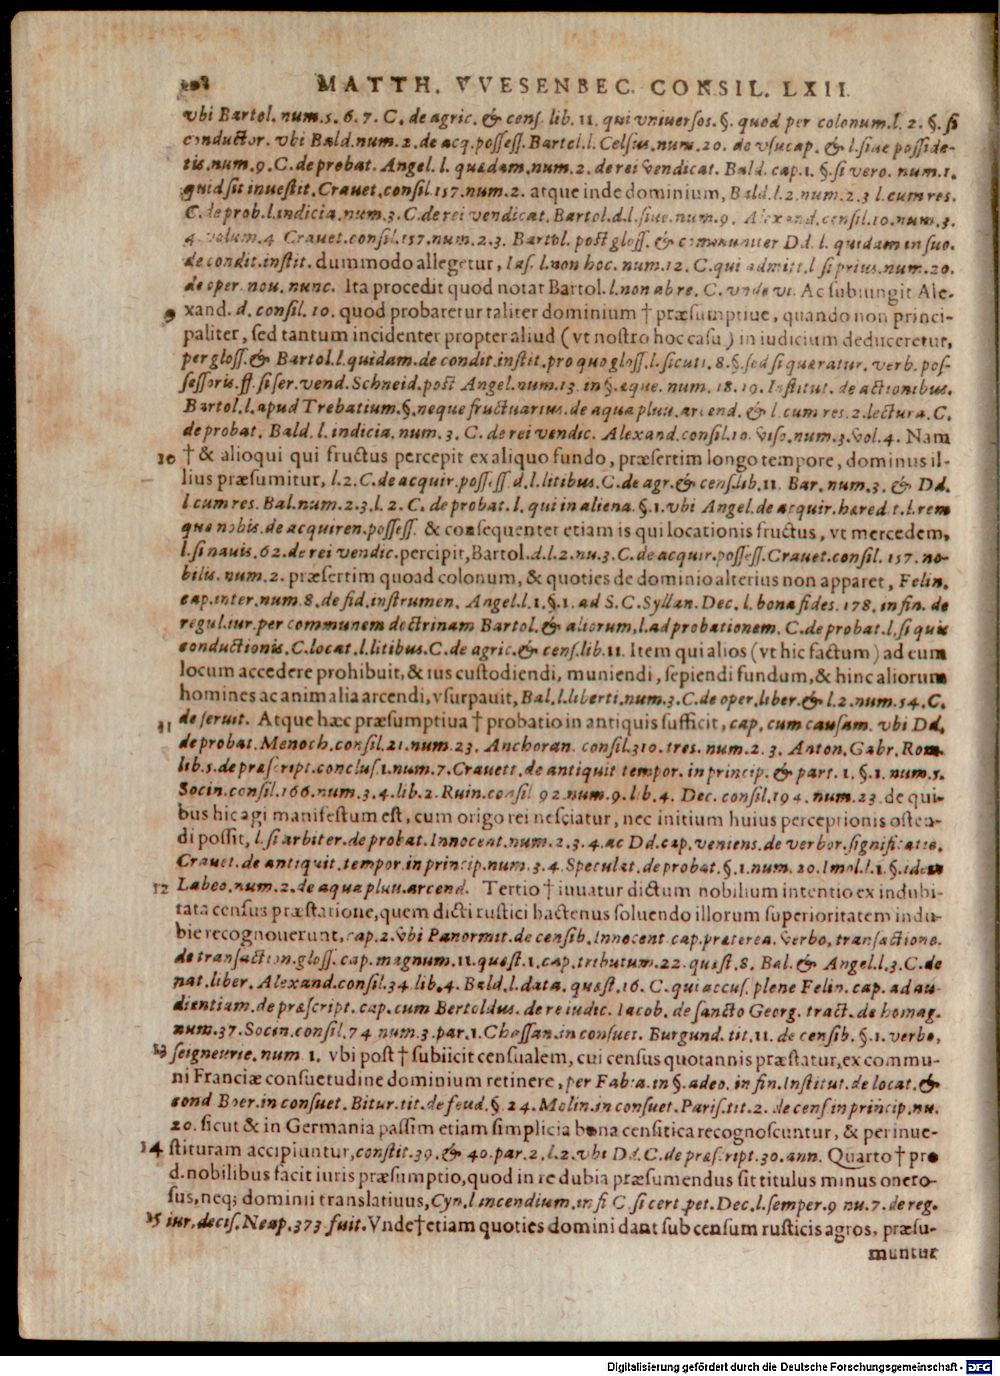 MATTH. VVESENBEC. CONSIL. LXII.
vbi Bartol. num. 5. 6. 7. C. de agric. & cens. lib. 11. qui vniuersos. §. quod per colonum. l. 2. §. si
conductor. vbi Bald. num. 2. de acq. possess. Bartol. l. Celsus, num. 20. de vsucap. & l. siue posside-
tis, num. 9. C. de probat. Angel. l. quædam, num. 2. de rei vendicat. Bald. cap. 1. §. si vero. num. 1.
quid sit inuestit. Crauet. consil. 157. num. 2. atque inde dominium, Bald. l. 2. num. 2. 3 l. cum res.
C. de prob. l. indicia, num. 3. C. de rei vendicat. Bartol. d. l. siue. num. 9. Alexand. consil. 10. num. 3.
4. volum. 4 Crauet. consil. 157. num. 2. 3. Bartol. post gloss. & communiter Dd. l. quidam in suo.
de condit. instit. dummodo allegetur, Ias. l. non hoc. num. 12. C. qui admitt. l si prius. num. 20.
de oper. nou. nunc. Ita procedit quod notat Bartol. l. non ab re. C. vnde vi. Ac subiungit Ale-
9 xand. d. consil. 10. quod probaretur taliter dominium † præsumptiue, quando non princi-
paliter, sed tantum incidenter propter aliud (vt nostro hoc casu) in iudicium deduceretur,
per gloss. & Bartol. l. quidam. de condit. instit. pro quo gloss. l. sicuti. 8. §. sed si quæratur. verb. pos-
sessoris. ff. si ser. vend. Schneid. post Angel. num. 13. in §. æque. num. 18. 19. Institut. de actionibus.
Bartol. l. apud Trebatium. §. neque fructuarius. de aqua pluu. arcend. & l. cum res. 2. lectura. C.
de probat. Bald. l. indicia, num. 3. C. de rei vendic. Alexand. consil. 10. viso. num. 3. vol. 4. Nam
10 † & alioqui qui fructus percepit ex aliquo fundo, præsertim longo tempore, dominus il-
lius præsumitur, l. 2. C. de acquir. poss. ff. d. l. litibus. C. de agr. & cens. lib. 11. Bar. num. 3. & Dd.
l cum res. Bal. num. 2. 3. l. 2. C. de probat. l. qui in aliena. §. 1. vbi Angel. de acquir. hæred. t. l. rem
quæ nobis. de acquiren. possess. & consequenter etiam is qui locationis fructus, vt mercedem,
l. si nauis. 62. de rei vendic. percipit, Bartol. d. l. 2. nu. 3. C. de acquir. possess. Crauet. consil. 157. no-
bilis. num. 2. præsertim quoad colonum, & quoties de dominio alterius non apparet, Felin.
cap. inter. num. 8. de fid. instrumen. Angel. l. 1. §. 1. ad S. C. Syllan. Dec. l. bona fides. 178. in fin. de
regul. iur. per communem doctrinam Bartol. & aliorum, l. ad probationem. C. de probat. l. si quis
conductionis. C. locat. l. litibus. C. de agric. & cens. lib. 11. Item qui alios (vt hic factum) ad eum
locum accedere prohibuit, & ius custodiendi, muniendi, sepiendi fundum, & hinc aliorum
homines ac animalia arcendi, vsurpauit, Bal. l. liberti. num. 3. C. de oper. liber. & l. 2. num. 54. C.
11 de seruit. Atque hæc præsumptiua † probatio in antiquis sufficit, cap. cum causam. vbi Dd.
de probat. Menoch. consil. 21. num. 23. Anchoran. consil. 310. tres. num. 2. 3. Anton. Gabr. Rom.
lib. 5. de præscript. conclus. 1. num. 7. Crauett. de antiquit tempor. in princip. & part. 1. §. 1. num. 5.
Socin. consil. 166. num. 3. 4. lib. 2. Ruin. consil 92 num. 9. lib. 4. Dec. consil. 194. num. 23 de qui-
bus hic agi manifestum est, cum origo rei nesciatur, nec initium huius perceptionis osten-
di possit, l. si arbiter. de probat. Innocent. num. 2. 3. 4. ac Dd. cap. veniens. de verbor. significatio.
Crauet. de antiquit. tempor. in princip. num. 3. 4. Speculat. de probat. §. 1. num. 20. Imol. l. 1. §. idem
12 Labeo. num. 2. de aqua pluu. arcend. Tertio † iuuatur dictum nobilium intentio ex indubi-
tata census præstatione, quem dicti rustici hactenus soluendo illorum superioritatem indu-
bie recognouerunt, cap. 2. vbi Panormit. de censib. Innocent. cap. præterea. verbo, transactione.
de transaction. gloss. cap. magnum. 11. quæst. 1. cap. tributum. 22. quæst. 8. Bal. & Angel. l. 3. C. de
nat. liber. Alexand. consil. 34. lib. 4. Bald. l. data. quæst. 16. C. qui accus. plene Felin. cap. ad au-
dientiam. de præscript. cap. cum Bertoldus. de re iudic. Iacob. de sancto Georg. tract. de homag.
num. 37. Socin. consil. 74 num. 3. par. 1. Chassan. in consuet. Burgund. tit. 11. de censib. §. 1. verbo,
13 seigneurie. num 1. vbi post † subiicit censualem, cui census quotannis præstatur, ex commu-
ni Franciæ consuetudine dominium retinere, per Fabra. in §. adeo. in fin. Institut. de locat. &
cond Boer. in consuet. Bitur. tit. de feud. §. 24. Molin. in consuet. Paris. tit. 2. de cens. in princip. nu.
20. sicut & in Germania passim etiam simplicia bona censitica recognoscuntur, & per inue-
14 stituram accipiuntur, constit. 39. & 40. par. 2. l. 2. vbi Dd. C. de præscript. 30. ann. Quarto † pro
d. nobilibus facit iuris præsumptio, quod in re dubia præsumendus sit titulus minus onero-
sus, neq; dominii translatiuus, Cyn. l. incendium. in fi C. si cert. pet. Dec. l. semper. 9 nu. 7. de reg.
15 iur. decis. Neap. 373 fuit. Vnde † etiam quoties domini dant sub censum rusticis agros, præsu-
muntur
Digitalisierung gefördert durch die Deutsche Forschungsgemeinschaft - DFG